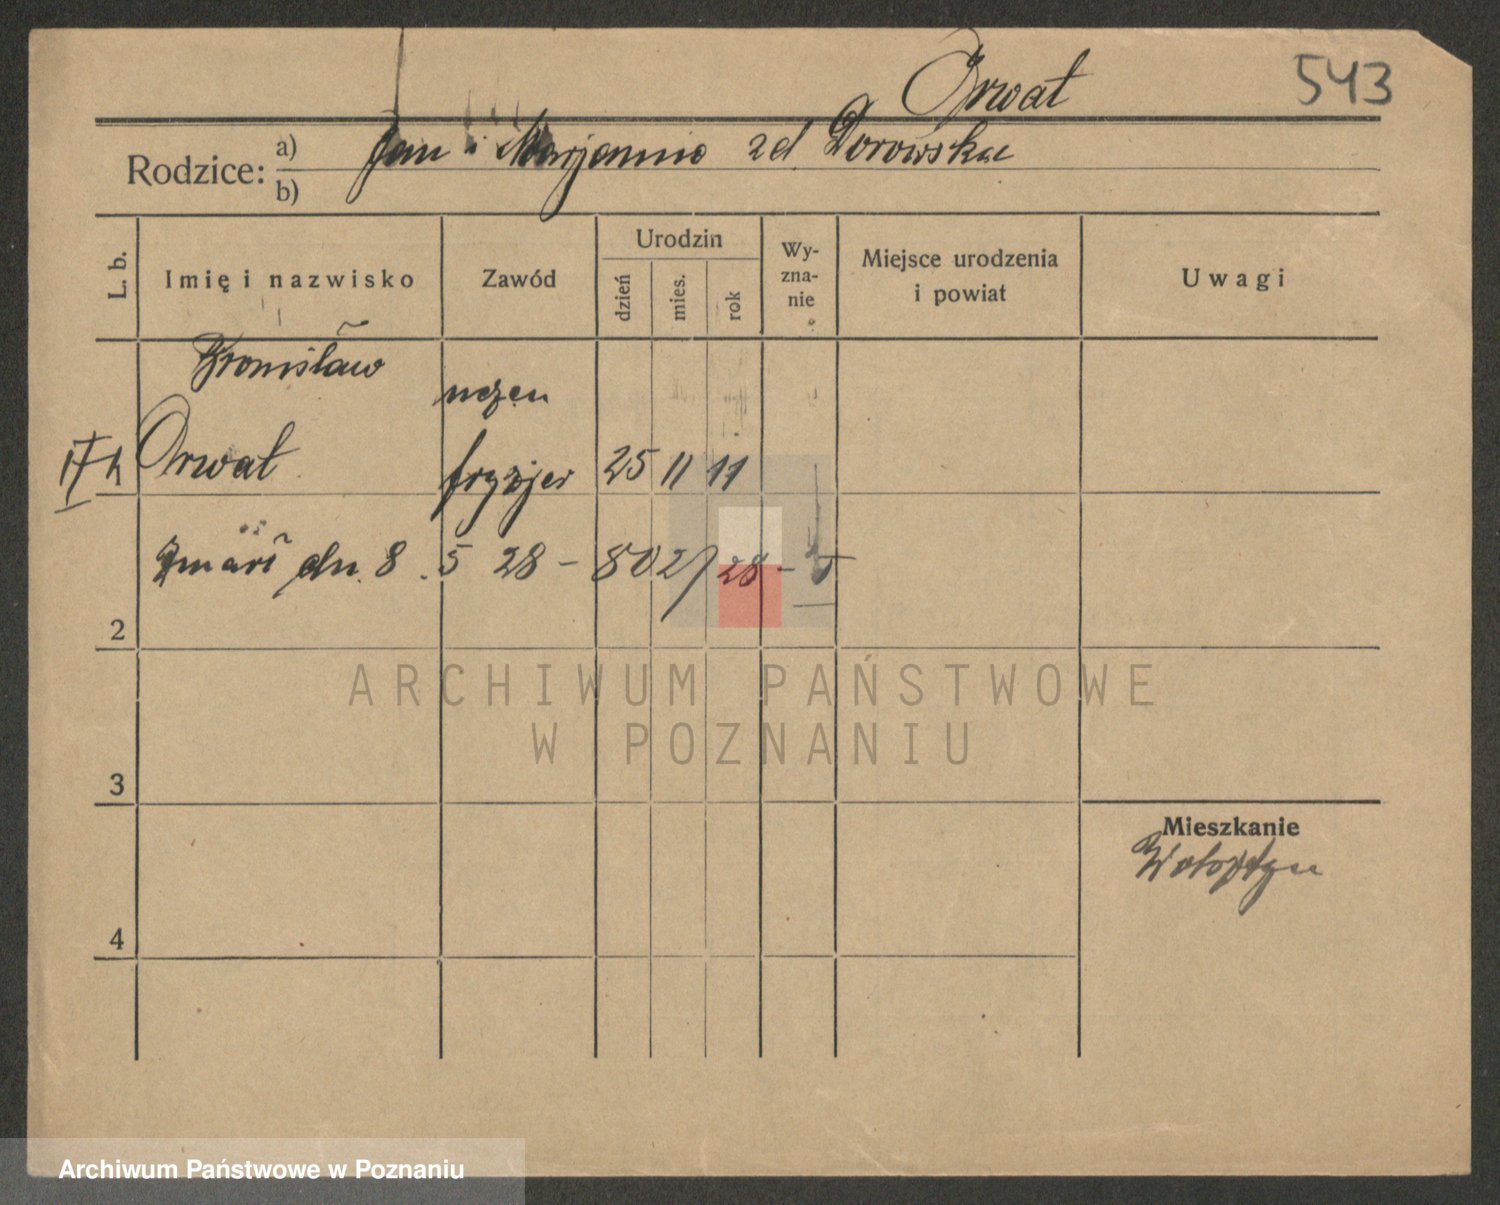 Orwat 543
Rodzice: a) Jan i Marjanna zd Dorowska
b)
L. b. Imię i nazwisko Zawód Urodzin dzień mies. rok Wy-zna-nie Miejsce urodzenia i powiat Uwagi
Bronisław
uczeń
Orwat fryzjer 25 11 11
1
Zmarł dn. 8.5 28 - 80 27/28 -
2
ARCHIWUM PAŃSTWOWE
W POZNANIU
3
Mieszkanie
Wolsztyn
4
Archiwum Państwowe w Poznaniu